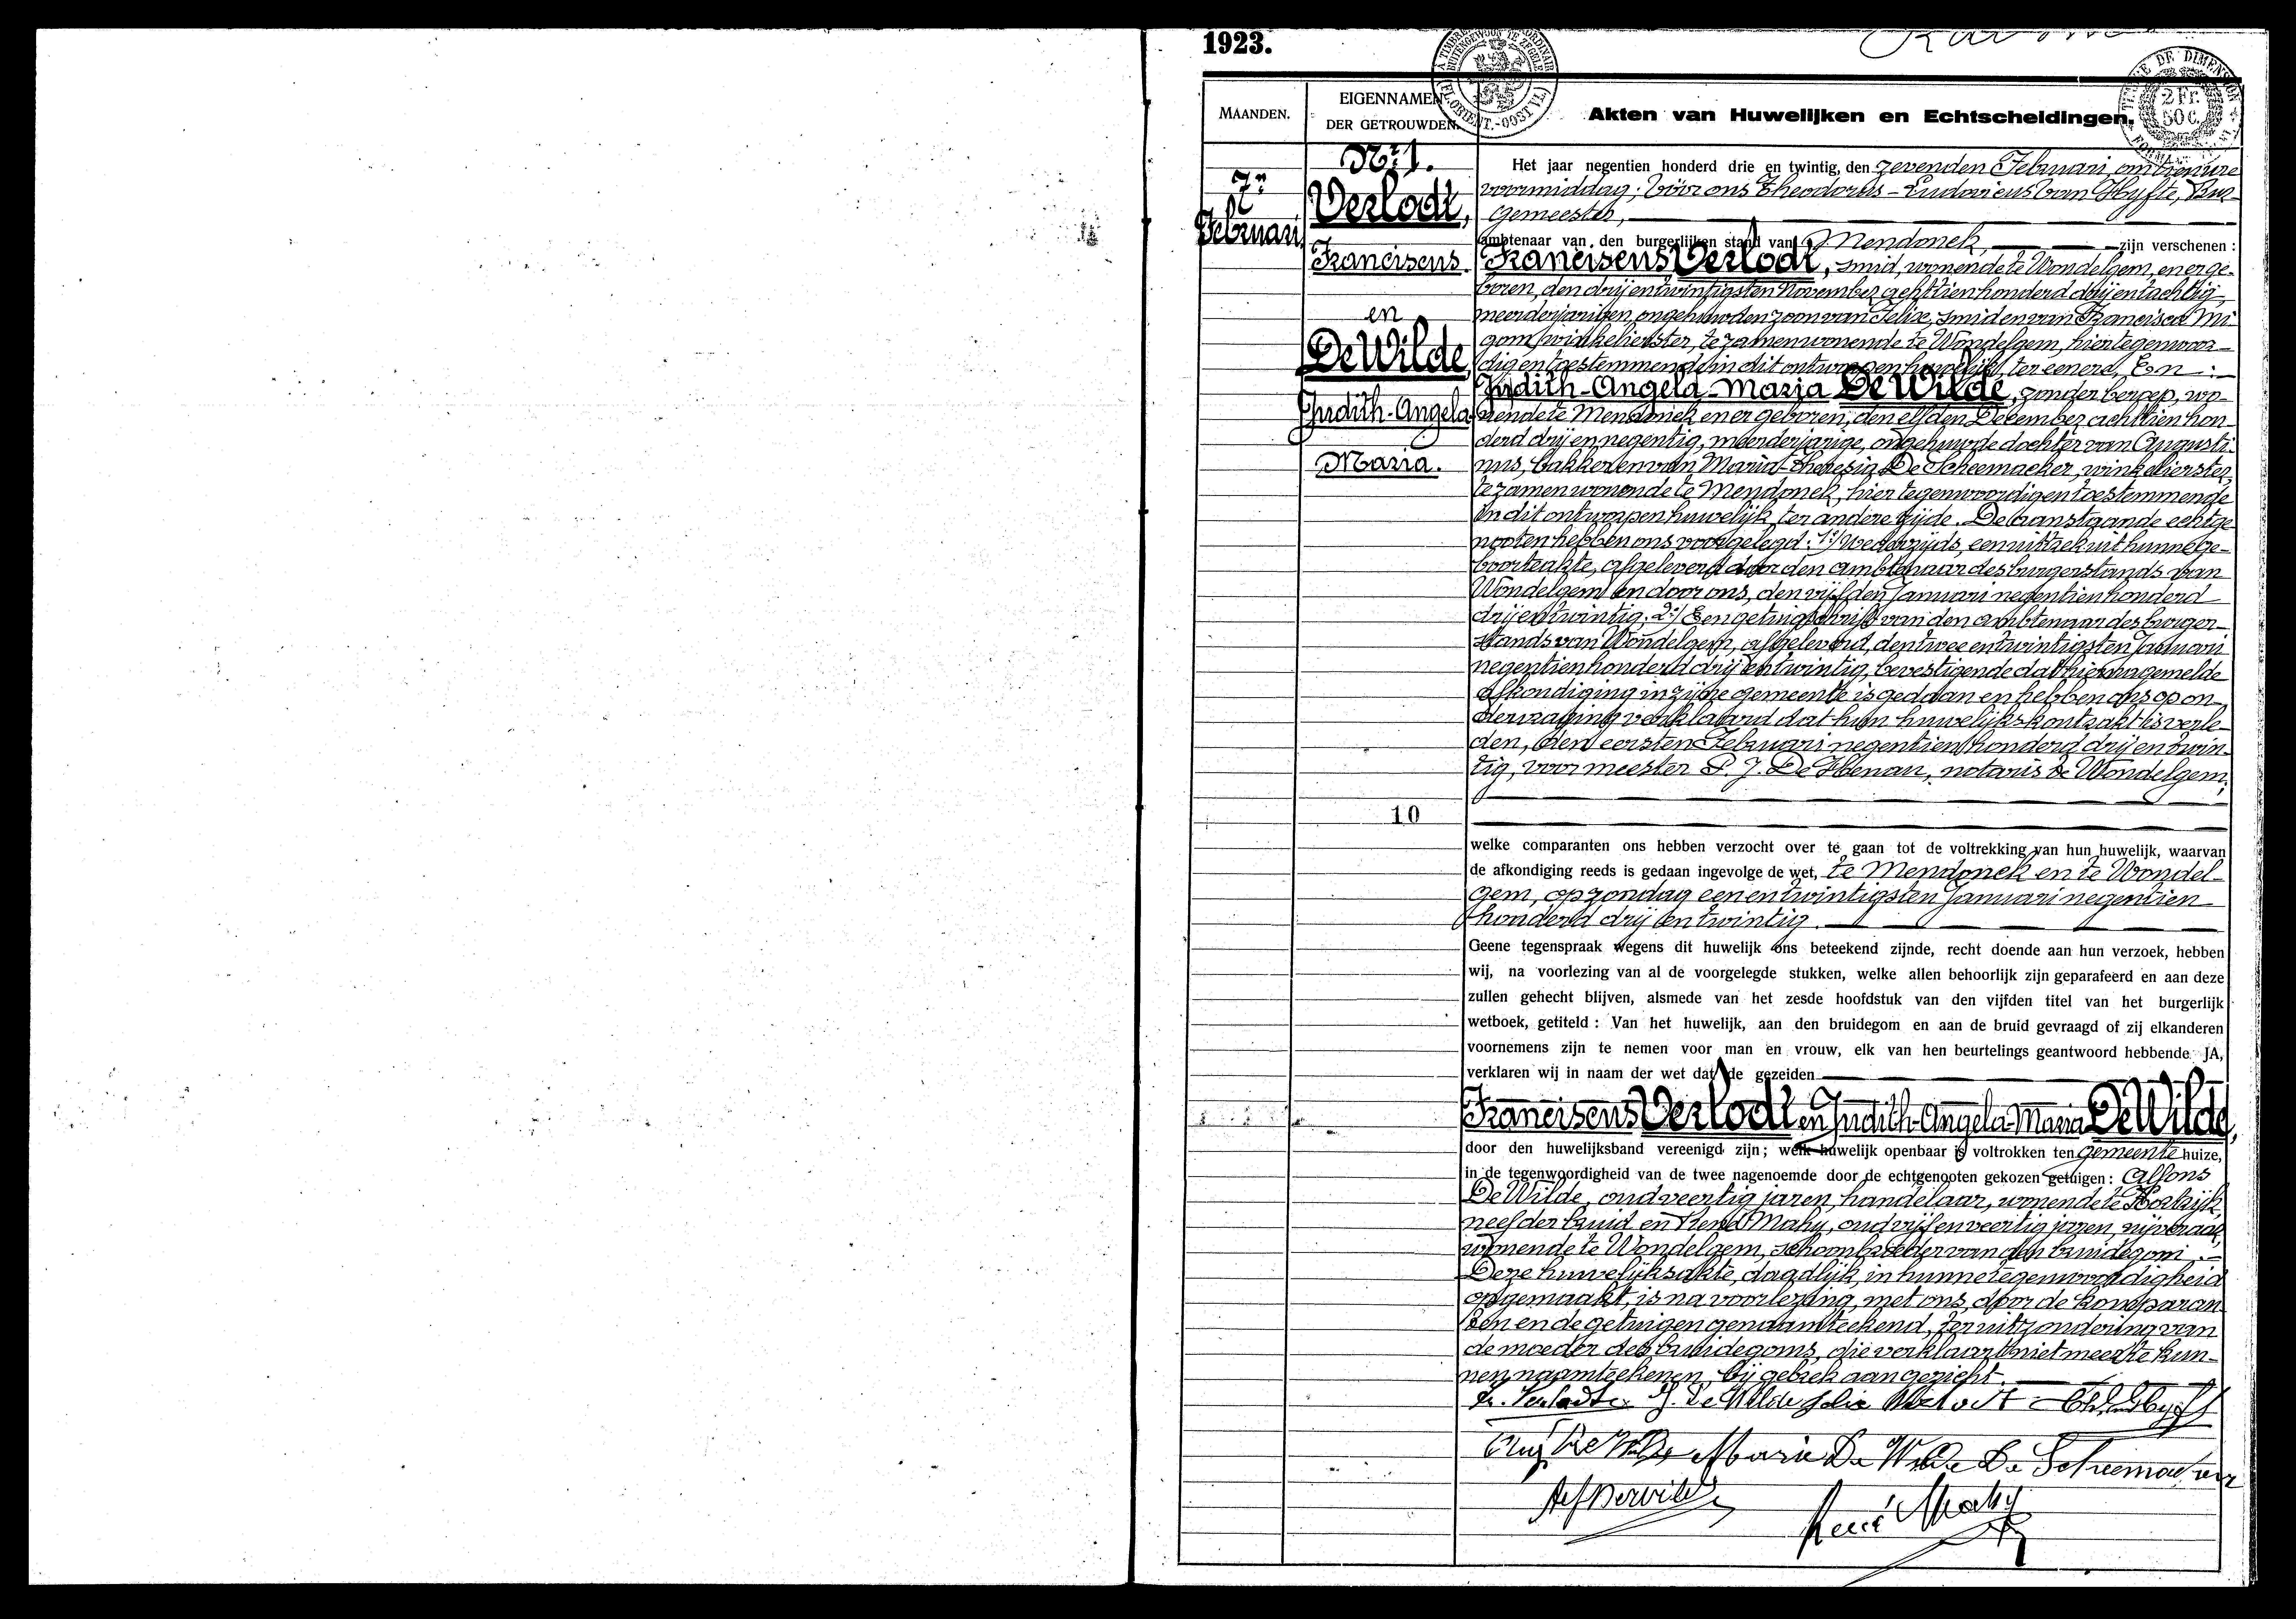 1923.
MAANDEN.
EIGENNAMEN
DER GETROUWDEN.
Akten van Huwelijken en Echtscheidingen.
TIMBRE DE DIMENSION
2 Fr.
50 C.
Nr. 1.
7n
Februari.
Verlodt,
Franciscus
en
De Wilde,
Judith-Angela-
Maria.
10
Het jaar negentien honderd drie en twintig, den zevenden Februari, om tien ure
voormiddag; vóór ons Theodorus-Ludovicus Van Hyfte, Bur-
gemeester,
ambtenaar van den burgerlijken stand van Mendonck, zijn verschenen :
Franciscus Verlodt, smid, wonende te Wondelgem, en er ge-
boren, den drij en twintigsten November achttien honderd drij en tachtig,
meerderjarigen, ongehuwden zoon van Felix, smid en van Francisca Mi-
gom, winkelierster, te zamen wonende te Wondelgem, hier tegenwoor-
dig en toestemmende in dit ontworpen huwelijk, ter eenere, En :
Judith-Angela-Maria De Wilde, zonder beroep, wo-
nende te Mendonck en er geboren, den elfden December achttien hon-
derd drij en negentig, meerderjarige, ongehuwde dochter van Augusti-
nus, bakker en van Maria-Theresia De Scheemaeker, winkelierster,
te zamen wonende te Mendonck, hier tegenwoordig en toestemmende
in dit ontworpen huwelijk, ter andere zijde. De aanstaande echtge-
nooten hebben ons voorgelegd: 1.) Wederzijds, een uittrek uit hunne ge-
boorteakte, afgeleverd door den ambtenaar des burgerstands van
Wondelgem en door ons, den vijfden Januari negentien honderd
drij en twintig; 2.) Een getuigschrift van den ambtenaar des burger-
stands van Wondelgem, afgeleverd, den twee en twintigsten Januari
negentien honderd drij en twintig, bevestigende dat hierna gemelde
afkondiging in zijne gemeente is gedaan en hebben ons op on-
dervraging verklaard dat hun huwelijkskontrakt is verle-
den, den eersten Februari negentien honderd drij en twin-
tig, voor meester P. J. notaris te Wondelgem;
welke comparanten ons hebben verzocht over te gaan tot de voltrekking van hun huwelijk, waarvan
de afkondiging reeds is gedaan ingevolge de wet, te Mendonck en te Wondel-
gem, op zondag een en twintigsten Januari negentien
honderd drij en twintig.
Geene tegenspraak wegens dit huwelijk ons beteekend zijnde, recht doende aan hun verzoek, hebben
wij, na voorlezing van al de voorgelegde stukken, welke allen behoorlijk zijn geparafeerd en aan deze
zullen gehecht blijven, alsmede van het zesde hoofdstuk van den vijfden titel van het burgerlijk
wetboek, getiteld : Van het huwelijk, aan den bruidegom en aan de bruid gevraagd of zij elkanderen
voornemens zijn te nemen voor man en vrouw, elk van hen beurtelings geantwoord hebbende JA,
verklaren wij in naam der wet dat de gezeiden
Franciscus Verlodt en Judith-Angela-Maria De Wilde,
door den huwelijksband vereenigd zijn; welk huwelijk openbaar is voltrokken ten gemeente huize,
in de tegenwoordigheid van de twee nagenoemde door de echtgenooten gekozen getuigen: Alfons
De Wilde, oud veertig jaren, handelaar, wonende te Kortrijk,
neef der bruid en René Mahy, oud vijf en veertig jaren, nijveraar,
wonende te Wondelgem, schoonbroeder van den bruidegom.
Deze huwelijksakte, dadelijk in hunne tegenwoordigheid
opgemaakt, is na voorlezing, met ons, door de komparan-
ten en de getuigen genaamteekend, ter uitzondering van
de moeder des bruidegoms, die verklaard niet meer te kun-
nen naamteekenen, bij gebrek aan gezicht.
Fr. Verlodt J. De Wilde Felix Verlodt
Aug De Wilde Maria De Wilde De Scheemaeker
Alf Dewilde
René Mahy